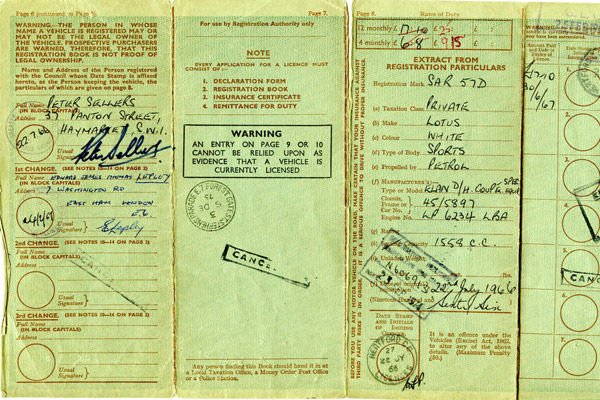 Page 6 (continued to Page 5)
WARNING.—THE PERSON IN WHOSE
NAME A VEHICLE IS REGISTERED MAY
OR MAY NOT BE THE LEGAL OWNER OF
THE VEHICLE. PROSPECTIVE PURCHASERS
ARE WARNED, THEREFORE, THAT THIS
REGISTRATION BOOK IS NOT PROOF OF
LEGAL OWNERSHIP.
Name and Address of the Person registered
with the Council whose Date Stamp is affixed
hereto, as the Person keeping the vehicle, the
particulars of which are given on page 8.
Full Name PETER SELLERS
(IN BLOCK CAPITALS)
Address 37 PANTON STREET,
HAYMARKET, S.W.1.
22.7.66
Usual
Signature Peter Sellers
1st CHANGE. (SEE NOTES 10—14 ON PAGE 2)
Full Name EDWARD JAMES THOMAS LEPLEY
(IN BLOCK CAPITALS)
Address 7 WASHINGTON RD
EAST HAM LONDON
E.6.
Usual
Signature E Lepley
2nd CHANGE. (SEE NOTES 10—14 ON PAGE 2)
Full Name
(IN BLOCK CAPITALS)
Address
CANC
Usual
Signature
3rd CHANGE. (SEE NOTES 10—14 ON PAGE 2)
Full Name
(IN BLOCK CAPITALS)
Address
Usual
Signature
Page 7.
For use by Registration Authority only
NOTE
EVERY APPLICATION FOR A LICENCE MUST
CONSIST OF:—
1. DECLARATION FORM
2. REGISTRATION BOOK
3. INSURANCE CERTIFICATE
4. REMITTANCE FOR DUTY
WARNING
AN ENTRY ON PAGE 9 OR 10
CANNOT BE RELIED UPON AS
EVIDENCE THAT A VEHICLE IS
CURRENTLY LICENSED
3 DE
CANC
Any person finding this Book should hand it in at
a Local Taxation Office, a Money Order Post Office
or a Police Station.
BEFORE YOU USE ANY MOTOR VEHICLE ON THE ROAD, MAKE CERTAIN THAT YOU ARE INSURED AGAINST
THIRD PARTY RISKS IN IT. IT IS A SERIOUS OFFENCE TO DRIVE WITHOUT PROPER INSURANCE.
Page 8.
Rates of Duty
12 monthly £ 17-10
4 monthly £ 6-8
EXTRACT FROM
REGISTRATION PARTICULARS
Registration Mark SAR 57D
(a) Taxation Class PRIVATE
(b) Make LOTUS
(c) Colour WHITE
(d) Type of Body SPORTS
(e) Propelled by PETROL
(f) MANUFACTURER'S
Type or Model ELAN D/H. COUPE SPEC. EQUIP.
Chassis,
Frame or
Car No. 45/5897
Engine No. LP 6234 LBA
Capacity 1558 C.C.
Unladen Weight
lbs.
22nd July 1966
(Nineteen Hundred and Sixty Six
DATE STAMP
AND INITIALS
OF ISSUING
OFFICER
HERTFORD C.C.
JY
66
LICENCES
It is an offence under the
Vehicles (Excise) Act, 1962,
to alter any of the above
details. (Maximum Penalty
£50.)
Amount Paid and
30/6/67
CANCE